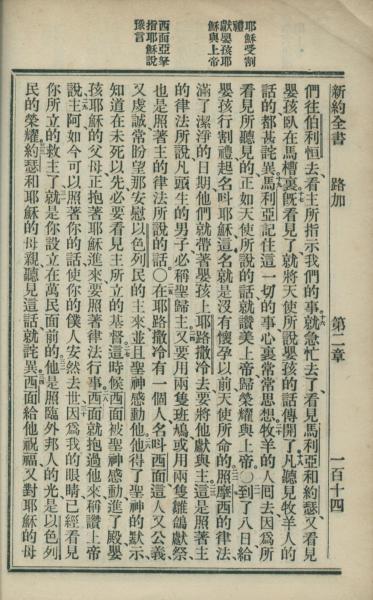 新約全書 路加 第二章 一百十四
耶穌受割
禮
獻嬰孩耶
穌與上帝
西面亞拏
指耶穌說
豫言
們往伯利恒去看主所指示我們的事就急忙去了看見馬利亞和約瑟又看見
嬰孩臥在馬槽裏旣看見了就將天使所說嬰孩的話傳開了凡聽見牧羊人的
話的都甚詫異馬利亞記住這一切的事心裏常常思想牧羊的人囘去因爲所
看見所聽見的正如天使所說的話就讚美上帝歸榮耀與上帝○到了八日給
嬰孩行割禮起名叫耶穌這名就是沒有懷孕以前天使所命的照摩西的律法
滿了潔淨的日期他們就帶著嬰孩上耶路撒冷去要將他獻與主這是照著主
的律法所說凡頭生的男子必稱聖歸主又要用兩隻班鳩或用兩隻雛鴿獻祭
也是照著主的律法所說的話○在耶路撒冷有一個人名叫西面這人又公義
又虔誠常盼望那安慰以色列民的主來並且聖神感動他他得了聖神的默示
知道在未死以先必要看見主所立的基督這時候西面被聖神感動進了殿嬰
孩耶穌的父母正抱著耶穌進來要照著律法行事西面就抱過他來稱讚上帝
說主阿如今可以照著你的話使你的僕人安然去世因爲我的眼睛已經看見
你所立的救主了就是你設立在萬民面前的他是照臨外邦人的光是以色列
民的榮耀約瑟和耶穌的母親聽見這話就詫異西面給他祝福又對耶穌的母